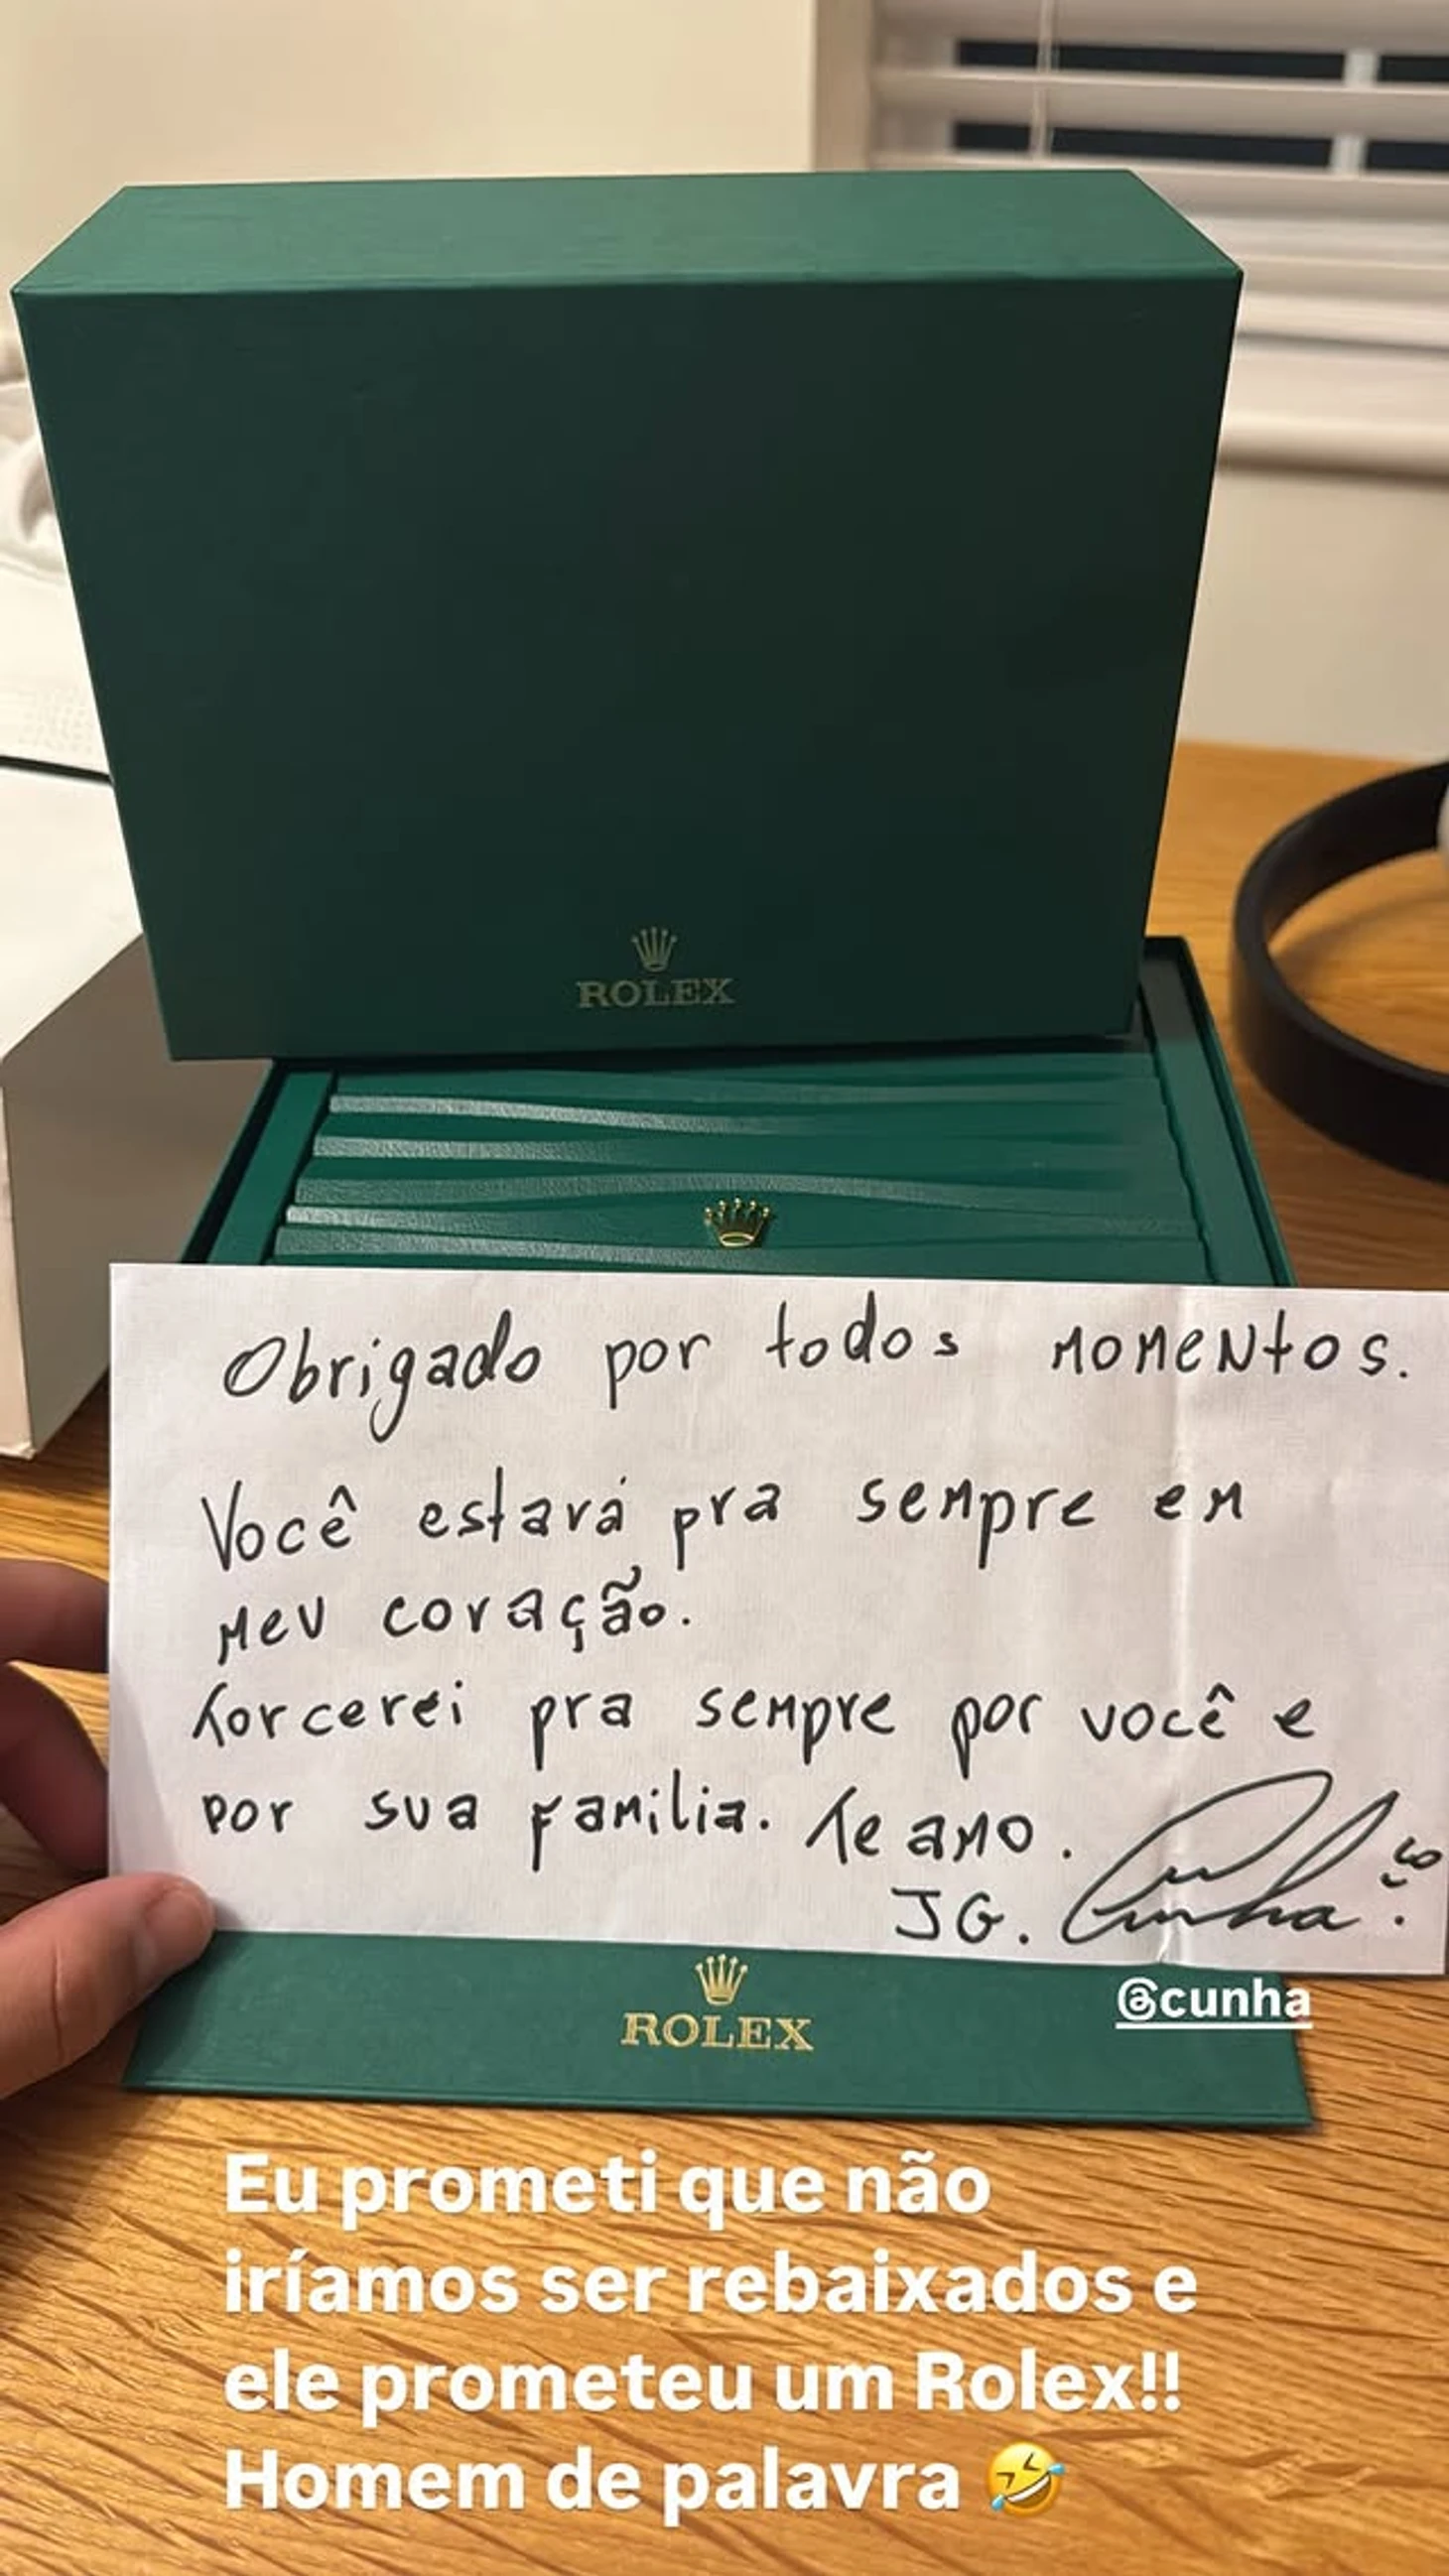 ROLEX
Obrigado por todos momentos.
Você estará pra sempre em
meu coração.
Torcerei pra sempre por você e
por sua familia. Te amo.
JG. Cunha
ROLEX
@cunha
Eu prometi que não
iríamos ser rebaixados e
ele prometeu um Rolex!!
Homem de palavra 🤣